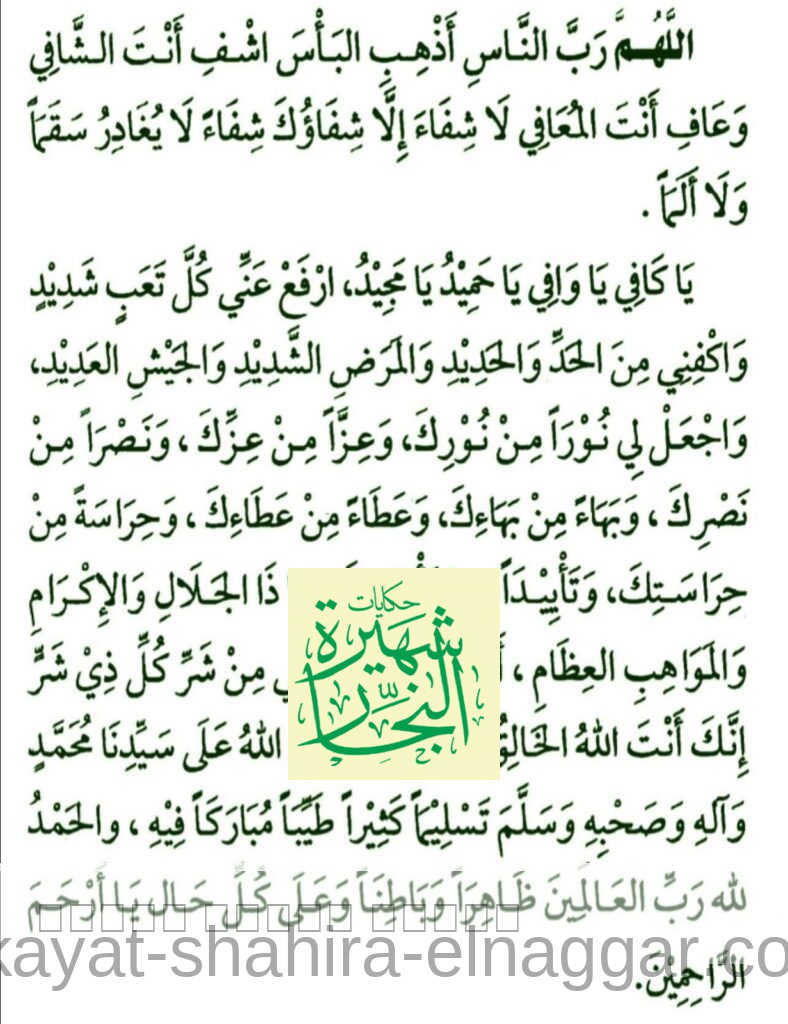 اللَّهُمَّ رَبَّ النَّاسِ أَذْهِبِ البَأْسَ اشْفِ أَنْتَ الشَّافِي
وَعَافِ أَنْتَ المُعَافِي لَا شِفَاءَ إِلَّا شِفَاؤُكَ شِفَاءً لَا يُغَادِرُ سَقَمَاً
وَلَا أَلَمَاً .
يَا كَافِي يَا وَافِي يَا حَمِيْدُ يَا مَجِيْدُ، ارْفَعْ عَنِّي كُلَّ تَعَبٍ شَدِيْدٍ
وَاكْفِنِي مِنَ الحَدِّ وَالحَدِيْدِ وَالمَرَضِ الشَّدِيْدِ وَالجَيْشِ العَدِيْدِ،
وَاجْعَلْ لِي نُوْرَاً مِنْ نُوْرِكَ، وَعِزَّاً مِنْ عِزِّكَ ، وَنَصْرَاً مِنْ
نَصْرِكَ ، وَبَهَاءً مِنْ بَهَاءِكَ، وَعَطَاءً مِنْ عَطَاءِكَ ، وَحِرَاسَةً مِنْ
حِرَاسَتِكَ، وَتَأْيِيْدَاً ذَا الجَلَالِ وَالإِكْرَامِ
وَالمَوَاهِبِ العِظَامِ ، مِنْ شَرِّ كُلِّ ذِيْ شَرٍّ
إِنَّكَ أَنْتَ اللهُ اللهُ عَلَى سَيِّدِنَا مُحَمَّدٍ
حكايات
شهيرة
النجار
وَآلِهِ وَصَحْبِهِ وَسَلَّمَ تَسْلِيْمَاً كَثِيْرَاً طَيِّبَاً مُبَارَكَاً فِيْهِ ، والحَمْدُ
لله رَبِّ العَالَمِينَ ظَاهِرَاً وَبَاطِنَاً وَعَلَى كُلِّ حَالٍ يَا أَرْحَمَ
الرَّاحِمِيْنَ.
kayat-shahira-elnaggar.co